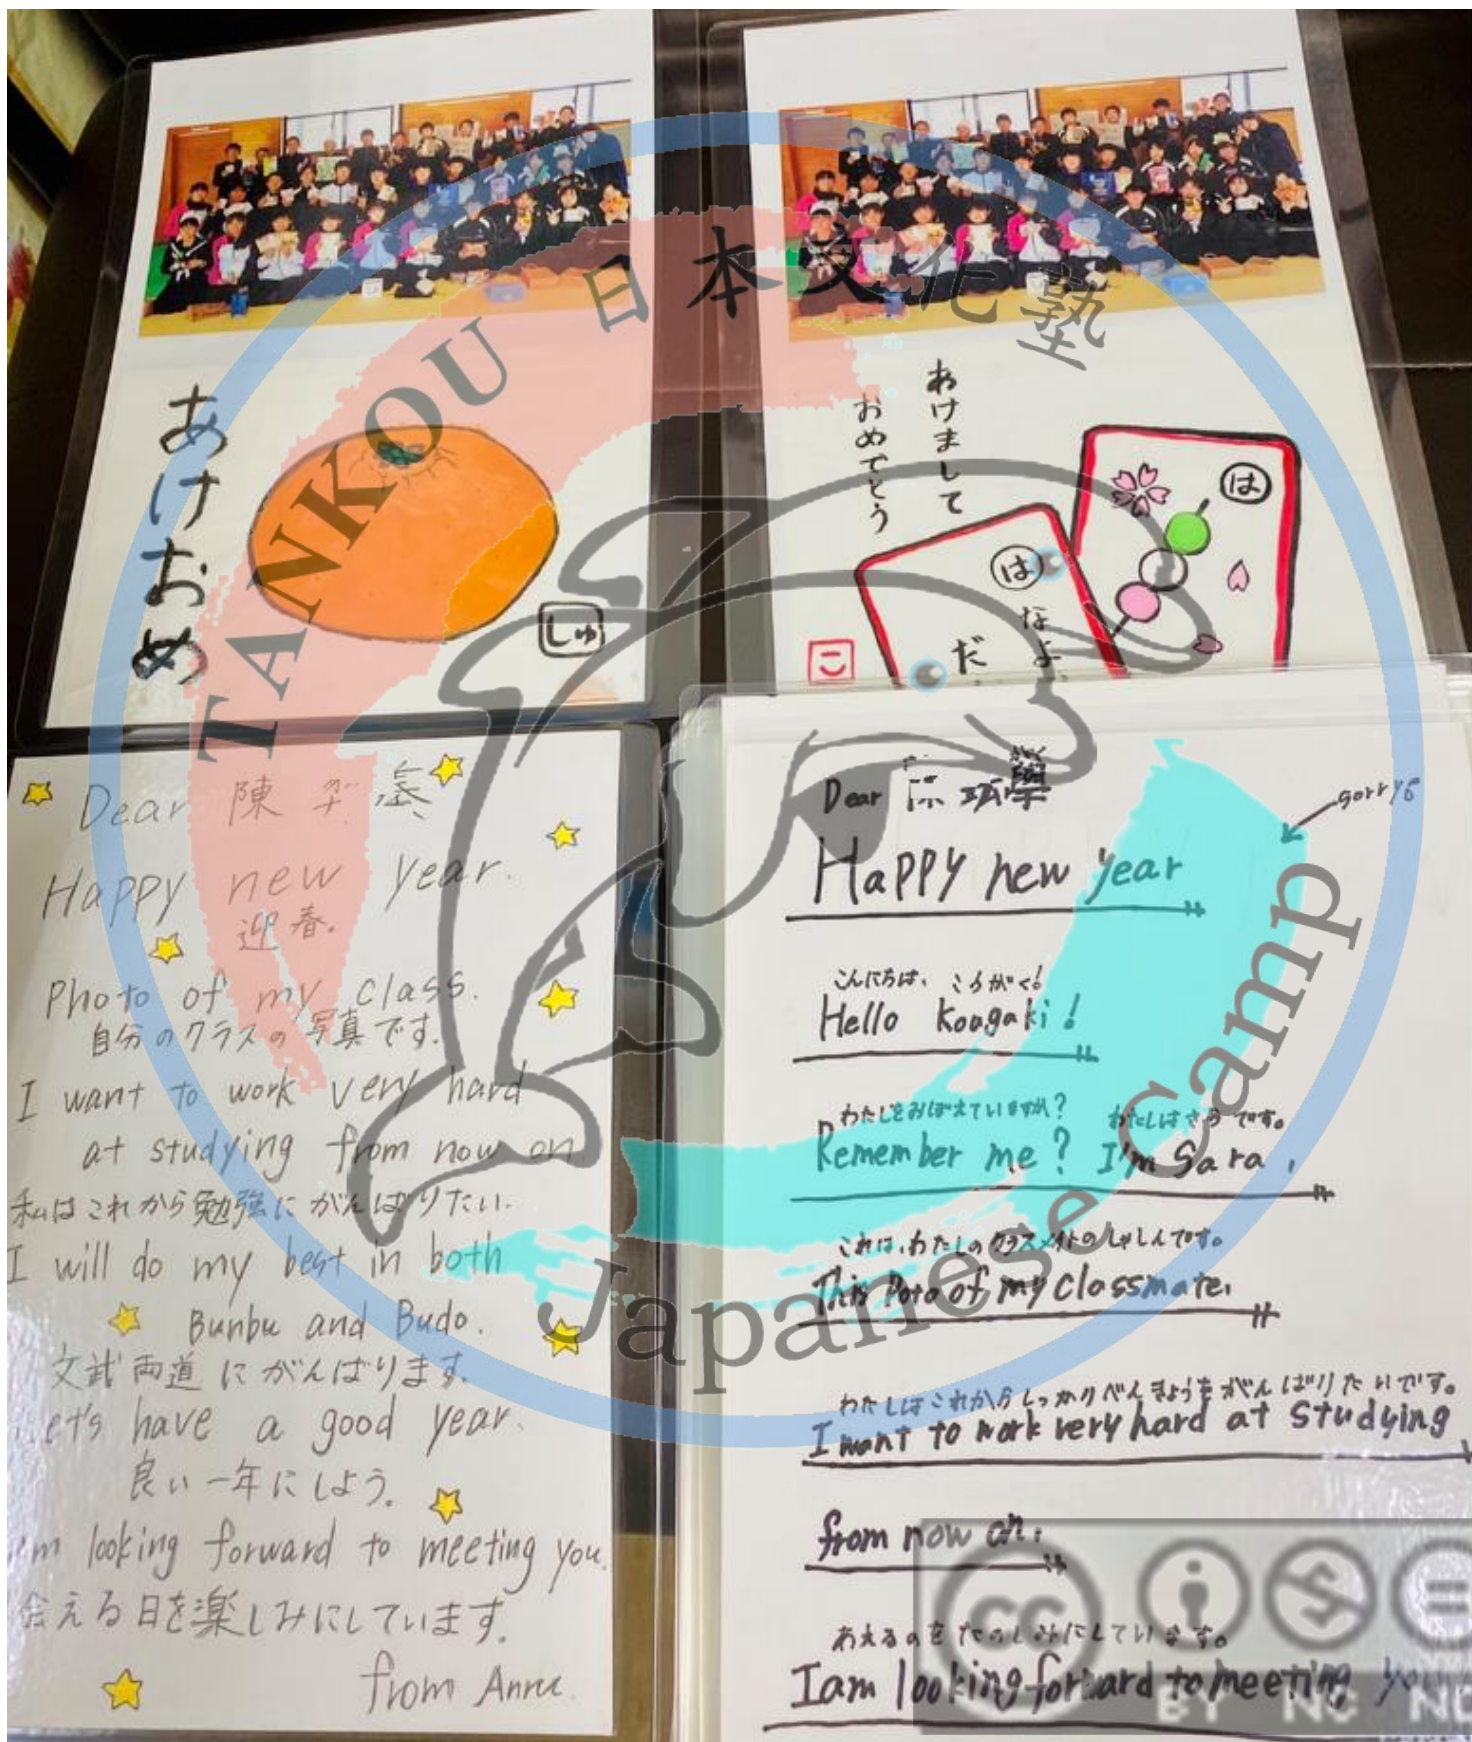 あけおめ
しゅ
あけまして
おめでとう
は
は
なよ
だ
こ
TANKOU 日本文化塾
Japanese Camp
Dear 陳
Happy new year.
迎春。
Photo of my class.
自分のクラスの写真です。
I want to work very hard
at studying from now on
私はこれから勉強にがんばりたい.
I will do my best in both
Bunbu and Budo.
文武両道にがんばります。
et's have a good year.
良い一年にしよう。
m looking forward to meeting you.
会える日を楽しみにしています。
from
Dear
sorry
Happy new year
こんにちは、こうがく!
Hello Kougaki!
わたしをおぼえていますか? わたしはさらです。
Remember me? I'm Sara.
これは、わたしのクラスメイトのしゃしんです。
This Poto of my classmate.
わたしはこれからしっかりべんきょうをがんばりたいです。
I want to work very hard at studying
from now on.
あえるのをたのしみにしています。
I am looking forward to meeting yo
cc
BY NC ND